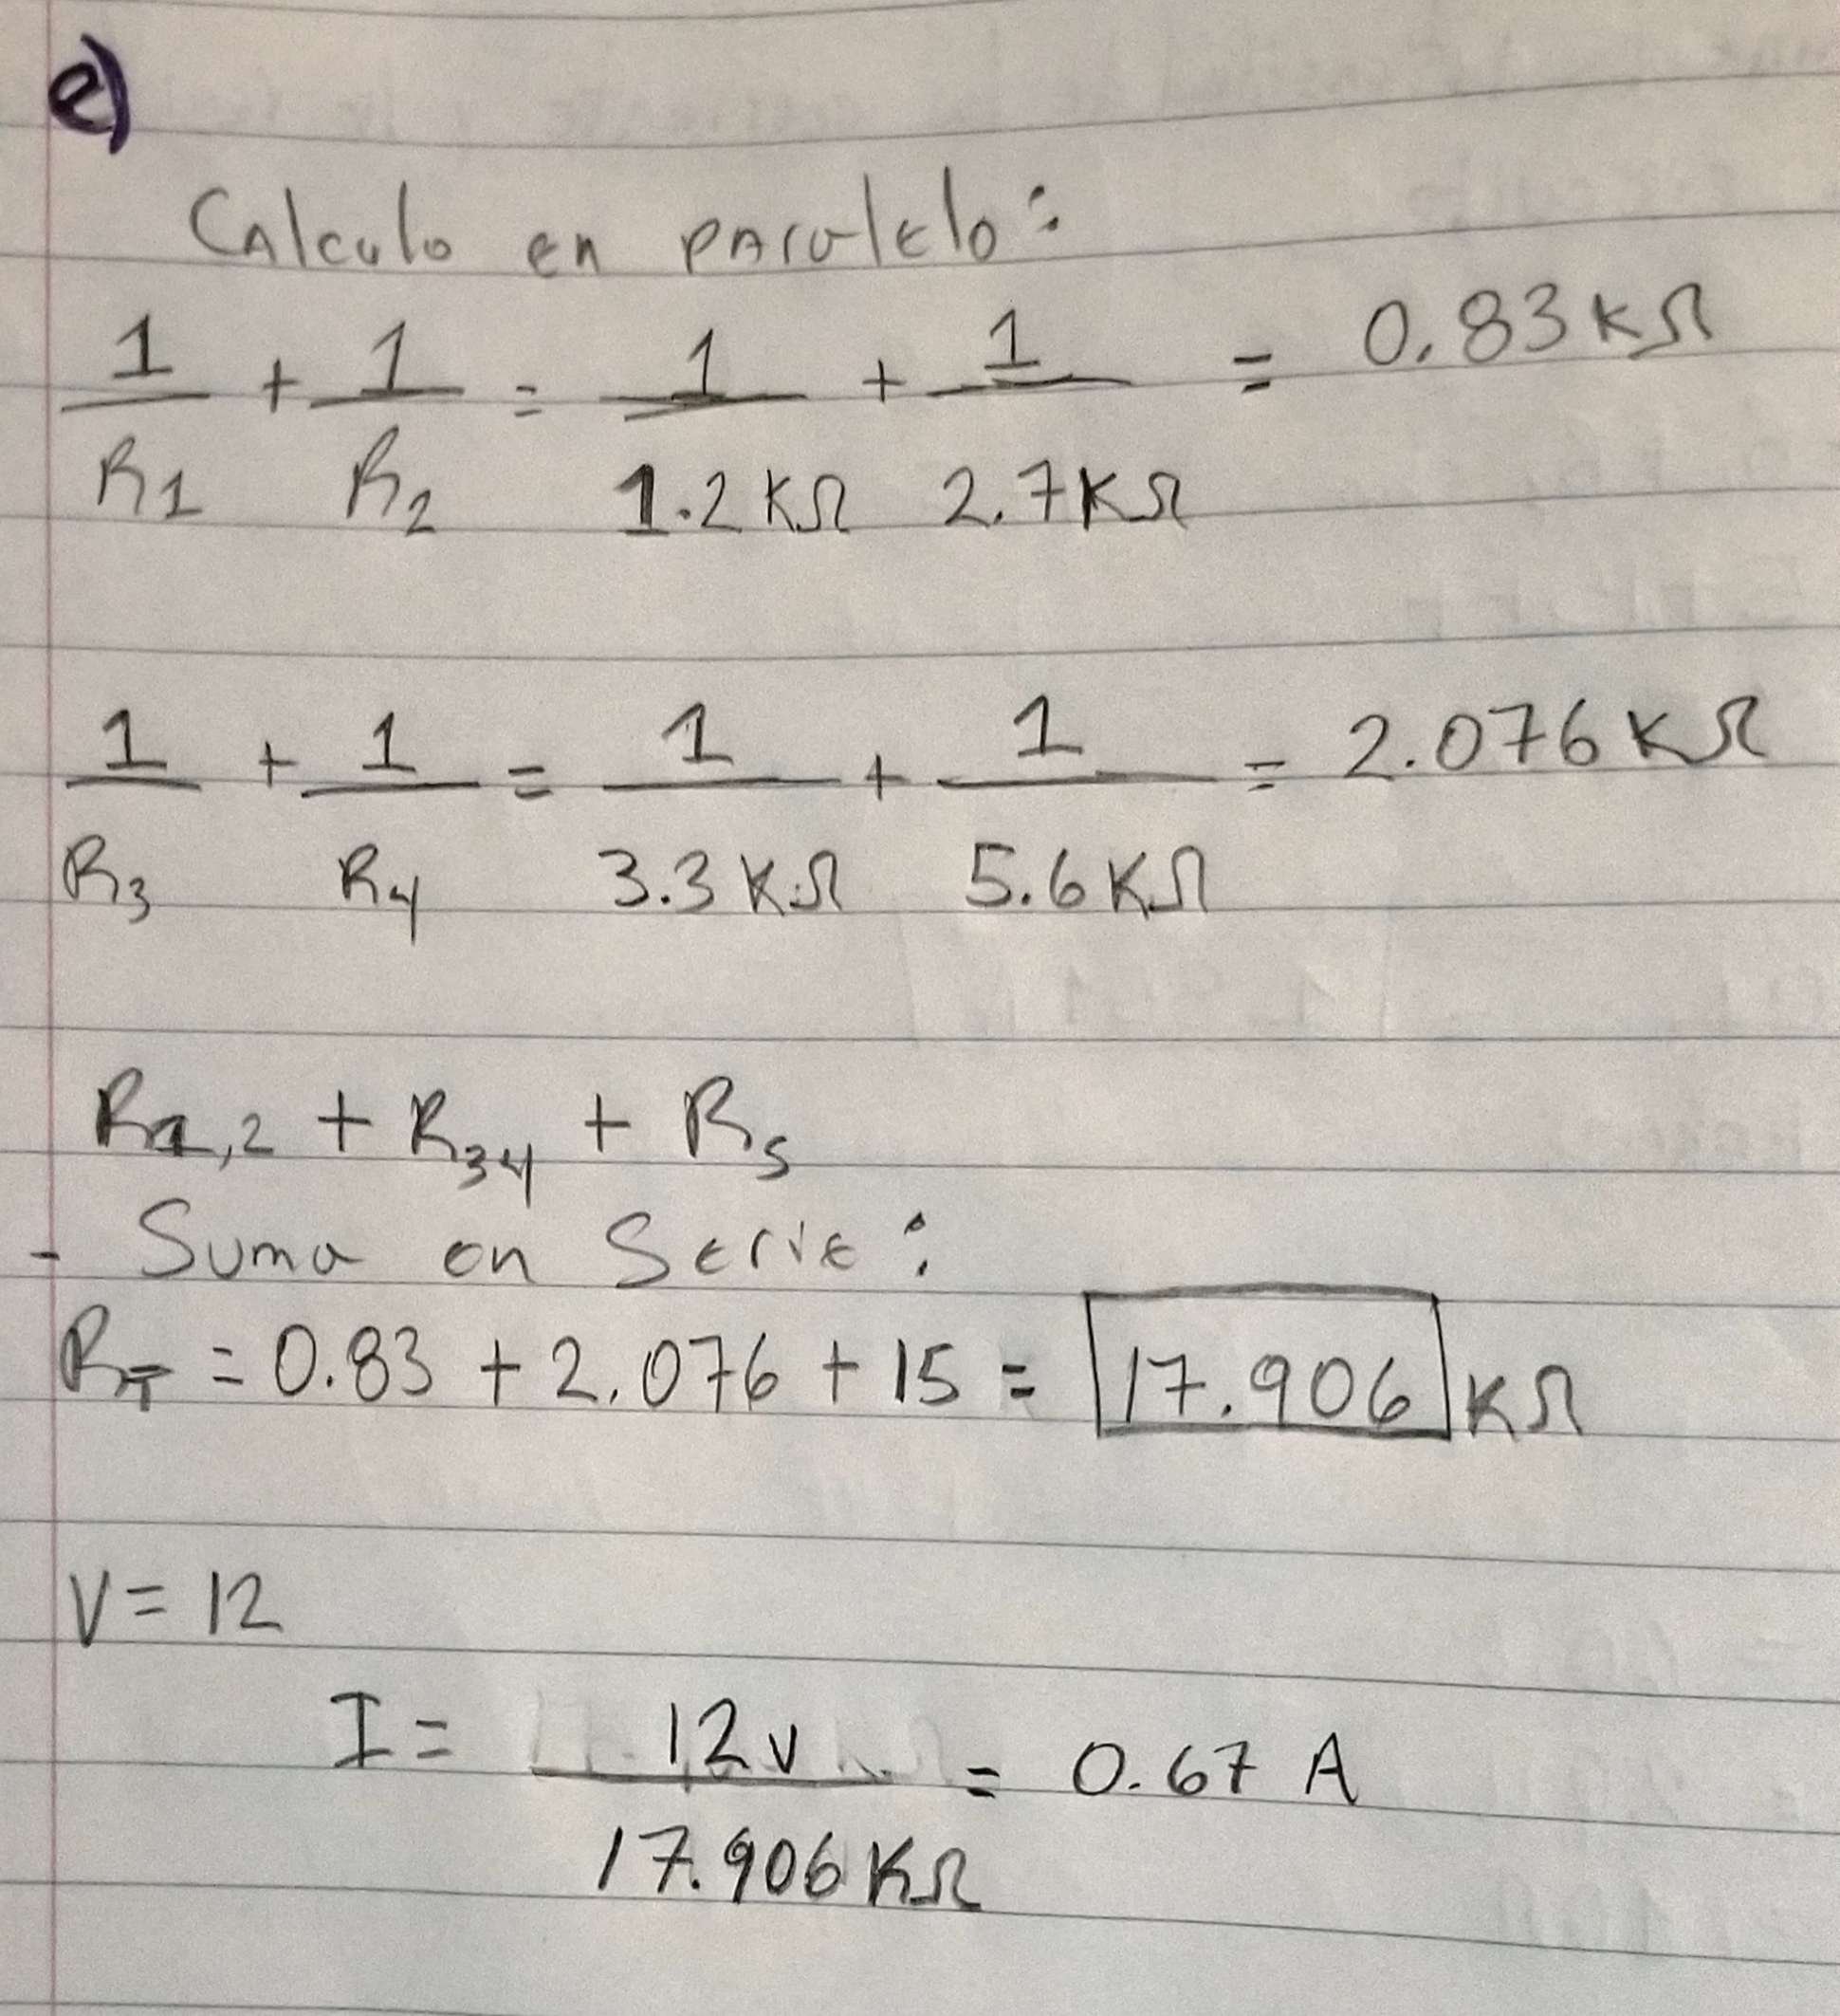 e)
Calculo en paralelo:
1/R1 + 1/R2 = 1/1.2KΩ + 1/2.7KΩ = 0.83KΩ
1/R3 + 1/R4 = 1/3.3KΩ + 1/5.6KΩ = 2.076KΩ
R1,2 + R34 + R5
- Suma en Serie:
RT = 0.83 + 2.076 + 15 = 17.906 KΩ
V = 12
I = 12v/17.906KΩ = 0.67 A